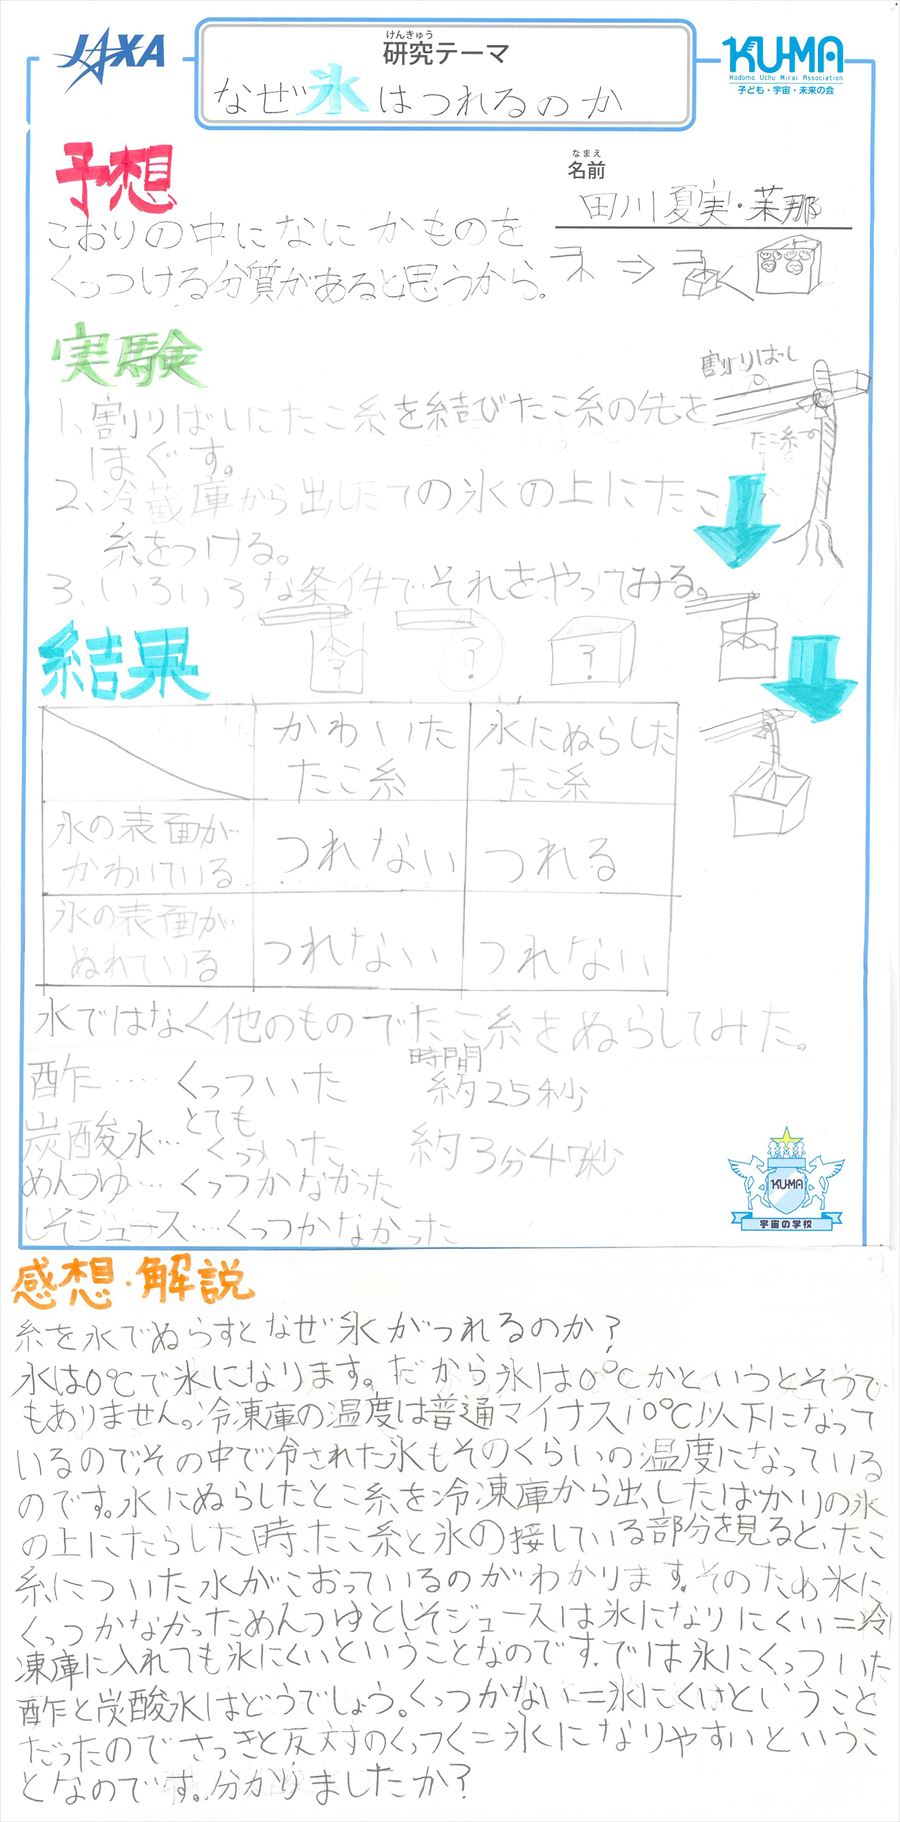 JAXA
けんきゅう
研究テーマ
なぜ氷はつれるのか
KU-MA
Kodomo Uchu Mirai Association
子ども・宇宙・未来の会
予想
なまえ
名前
田川夏実・茉那
こおりの中になにかものを
くっつける分質があると思うから。
実験
割りばし
たこ糸
1、割りばしにたこ糸を結びたこ糸の先を
ほぐす。
2、冷蔵庫から出したての氷の上にたこ
糸をつける。
3、いろいろな条件でそれをやってみる。
? ? ?
結果
かわいた
たこ糸
水にぬらした
たこ糸
氷の表面が
かわいている
つれない
つれる
氷の表面が
ぬれている
つれない
つれない
水ではなく他のものでたこ糸をぬらしてみた。
時間
酢…… くっついた 約25秒
とても
炭酸水… くっついた 約3分47秒
めんつゆ… くっつかなかった
しそジュース…. くっつかなかった
KU-MA
宇宙の学校
感想・解説
糸を水でぬらすとなぜ氷がつれるのか?
水は0℃で氷になります。だから氷は0℃かというとそうで
もありません。冷凍庫の温度は普通マイナス10℃以下になって
いるので、その中で冷された氷もそのくらいの温度になっている
のです。水にぬらしたとこ糸を冷凍庫から出したばかりの氷
の上にたらした時、たこ糸と氷の接している部分を見ると、たこ
糸についた水がこおっているのがわかります。そのため氷に
くっつかなかっためんつゆとしそジュースは氷になりにくい=冷
凍庫に入れても氷にくいということなのです。では氷にくっついた
酢と炭酸水はどうでしょう。くっつかない=氷にくいということ
だったのでさっきと反対のくっつく=氷になりやすいというこ
となのです。分かりましたか?